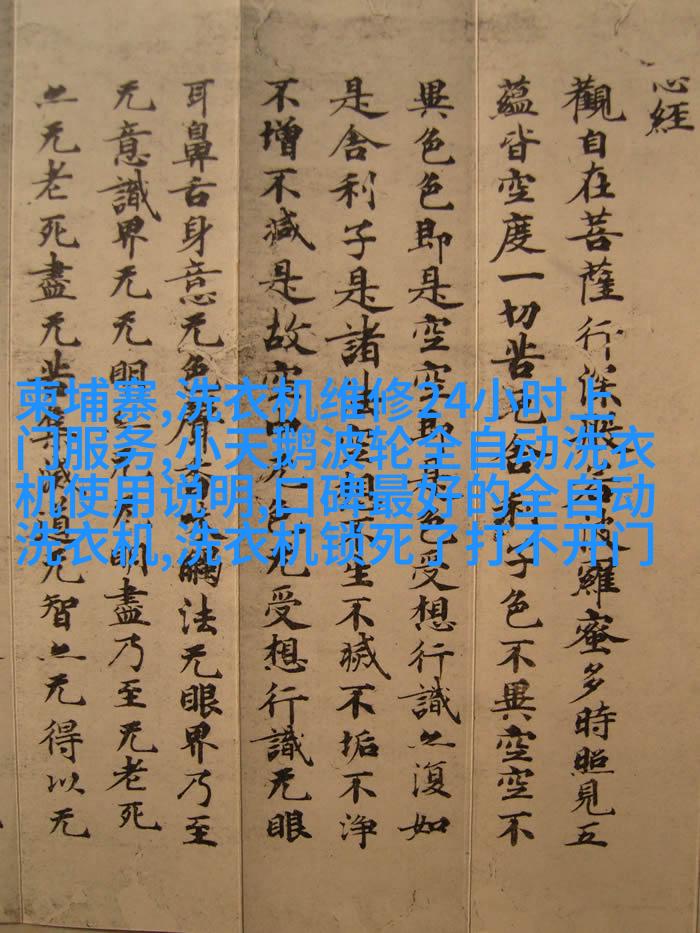 心經
觀自在菩薩行深般若波羅蜜多時照見五
蘊皆空度一切苦厄舍利子色不異空空不
異色色即是空空即是色受想行識亦復如
是舍利子是諸法空相不生不滅不垢不淨
不增不減是故空中无色无受想行識无眼
耳鼻舌身意无色聲香味觸法无眼界乃至
无意識界无无明亦无无明盡乃至无老死
亦无老死盡无苦集滅道无智亦无得以无
柬埔寨,洗衣机维修24小时上
门服务,小天鹅波轮全自动洗衣
机使用说明,口碑最好的全自动
洗衣机,洗衣机锁死了打不开门